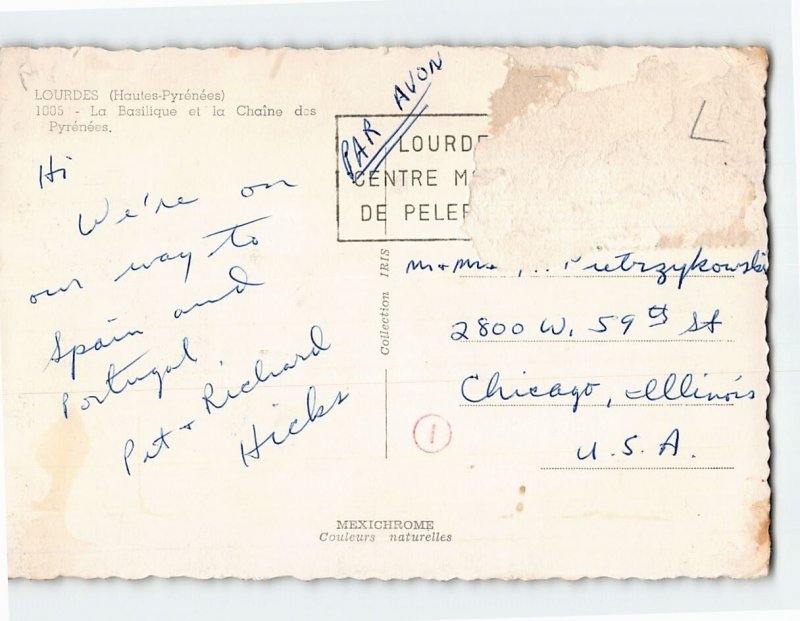 LOURDES (Hautes-Pyrénées)
1005 - La Basilique et la Chaîne des
Pyrénées.
PAR AVON
LOURDE
CENTRE M
DE PELER
Hi
We're on
our way to
Spain and
Portugal
Pat + Richard
Hicks
Collection IRIS
Mr + Mrs Pietrzykowski
2800 W. 59th St
Chicago, Illinois
U.S.A.
1
MEXICHROME
Couleurs naturelles